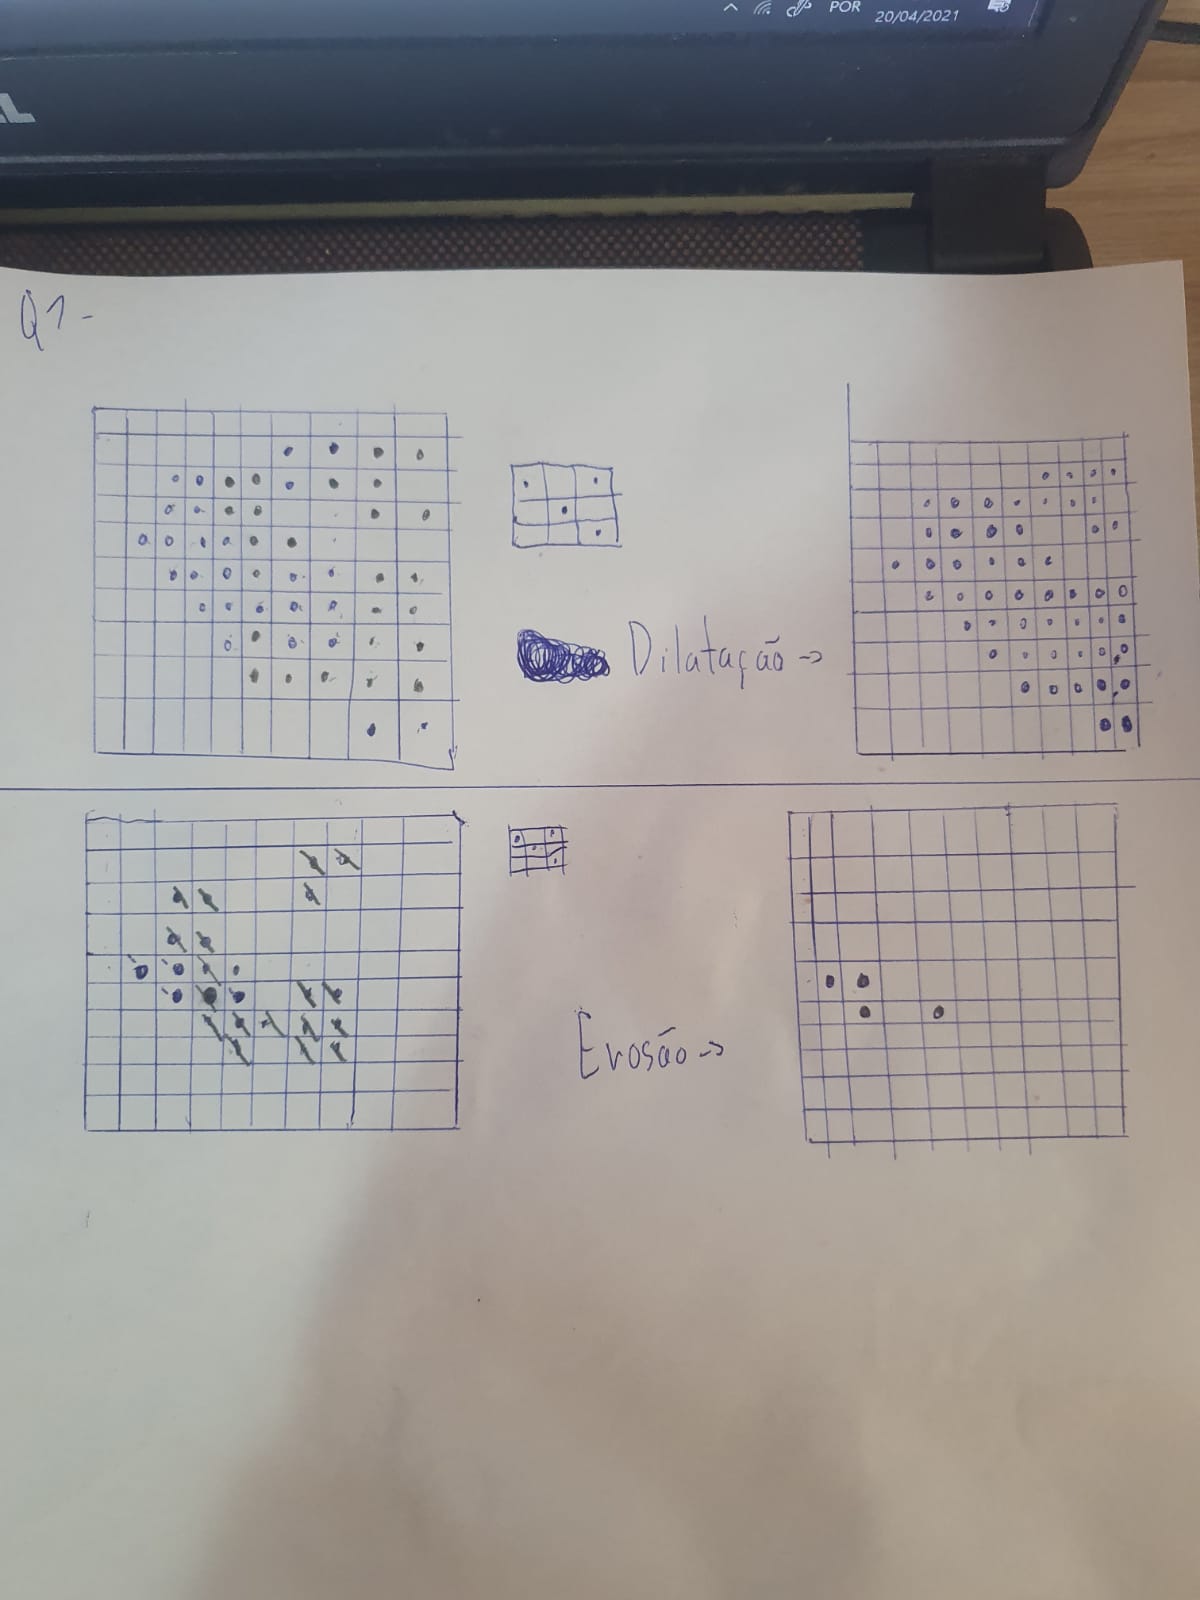 POR
20/04/2021
Q1-
Dilatação ->
Erosão ->